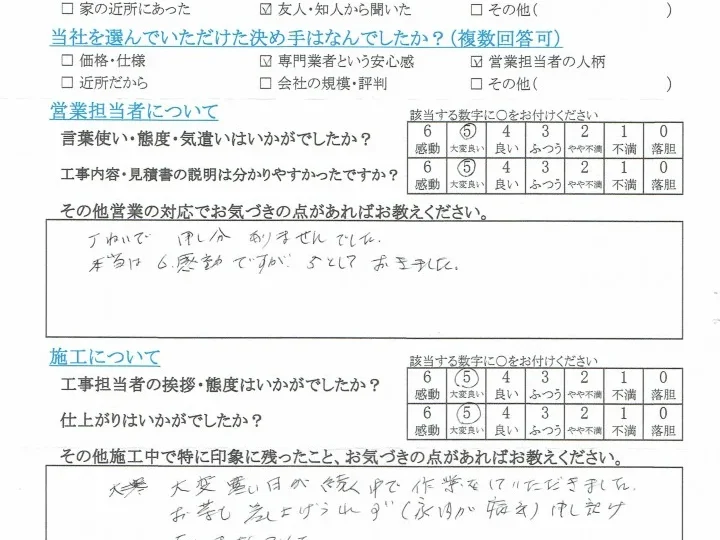 □ 家の近所にあった ☑ 友人・知人から聞いた □ その他( )
当社を選んでいただけた決め手はなんでしたか？(複数回答可)
□ 価格・仕様 ☑ 専門業者という安心感 ☑ 営業担当者の人柄
□ 近所だから □ 会社の規模・評判 □ その他( )
営業担当者について
該当する数字に○をお付けください
言葉使い・態度・気遣いはいかがでしたか？
6 5 4 3 2 1 0
感動 大変良い 良い ふつう やや不満 不満 落胆
工事内容・見積書の説明は分かりやすかったですか？
6 5 4 3 2 1 0
感動 大変良い 良い ふつう やや不満 不満 落胆
その他営業の対応でお気づきの点があればお教えください。
丁ねいで 申し分 ありませんでした.
本当は 6.感動 ですが. 5として おきました。
施工について
該当する数字に○をお付けください
工事担当者の挨拶・態度はいかがでしたか？
6 5 4 3 2 1 0
感動 大変良い 良い ふつう やや不満 不満 落胆
仕上がりはいかがでしたか？
6 5 4 3 2 1 0
感動 大変良い 良い ふつう やや不満 不満 落胆
その他施工中で特に印象に残ったこと、お気づきの点があればお教えください。
大変 悪い日が 続く中で 作業をしていただきました.
お茶も 差し上げられず( 病気) 申し訳